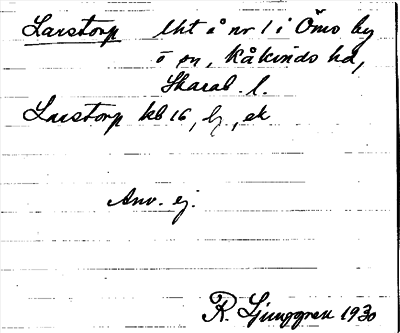 Larstorp lht å nr 1 i Ömo by
i sn, Kåkinds hd,
Skarab. l.
Larstorp kb 16, by, ek
Anv. ej.
R. Ljunggren 1930